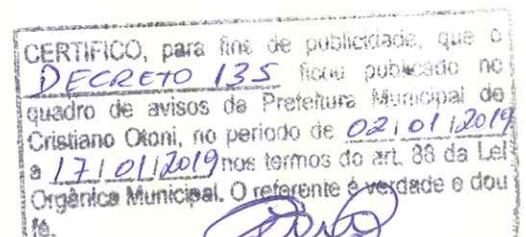 CERTIFICO, para fins de publicidade, que o
DECRETO 135 ficou publicado no
quadro de avisos da Prefeitura Municipal de
Cristiano Otoni, no período de 02/01/2019
a 17/01/2019 nos termos do art. 88 da Lei
Orgânica Municipal. O referente é verdade e dou
fé.